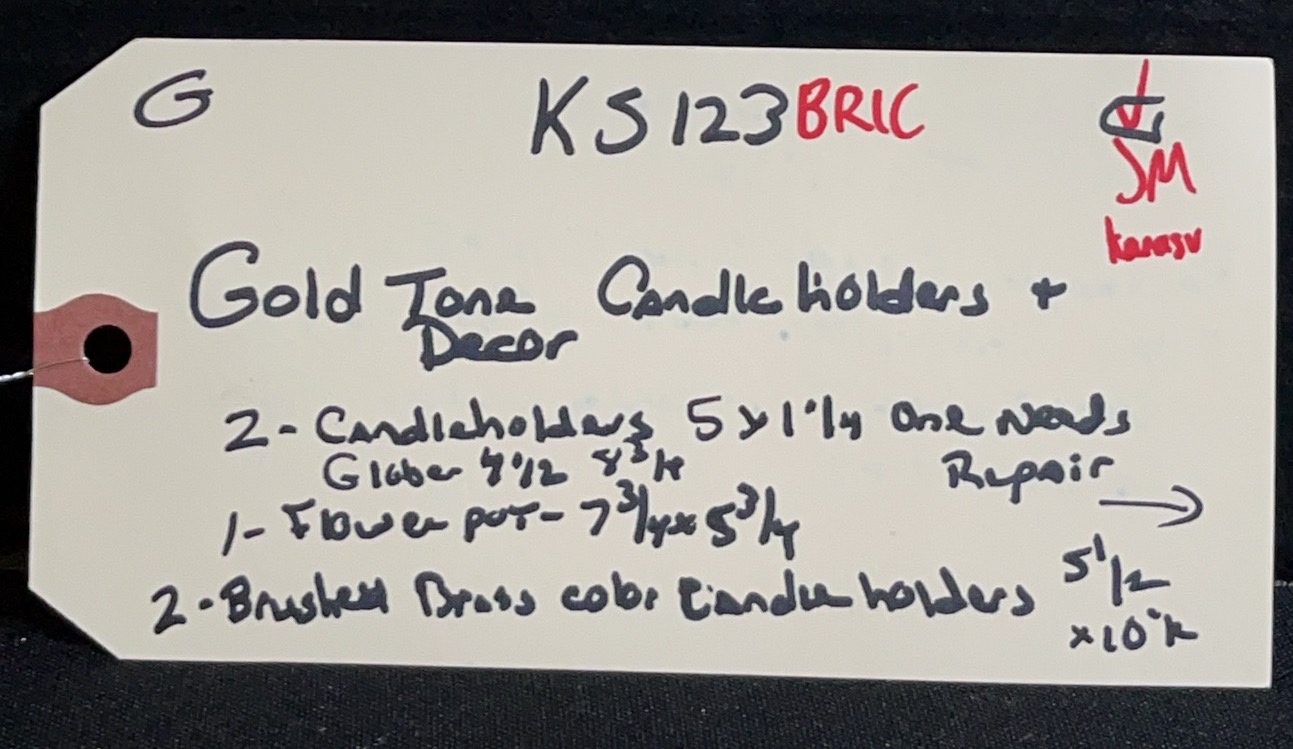 G KS123BRIC G
JM
Gold Tone Candleholders +
Decor
2 - Candleholders 5 x 1 1/4 One Needs
Repair →
Globe
1 - Flower pot - 7 3/4 x 5 3/4
2 - Brushed Brass color Candle holders 5 1/2
x 10